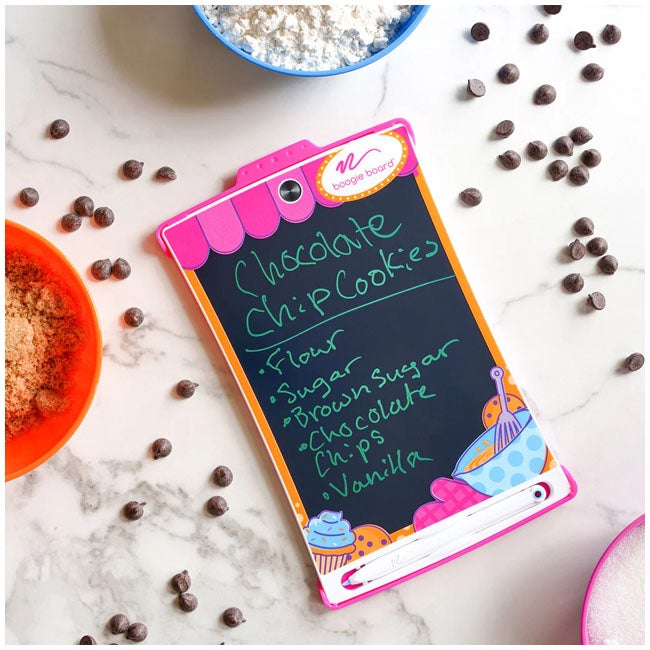 boogie board
Chocolate
Chip Cookies
• Flour
• Sugar
• Brown Sugar
• Chocolate
Chips
• Vanilla